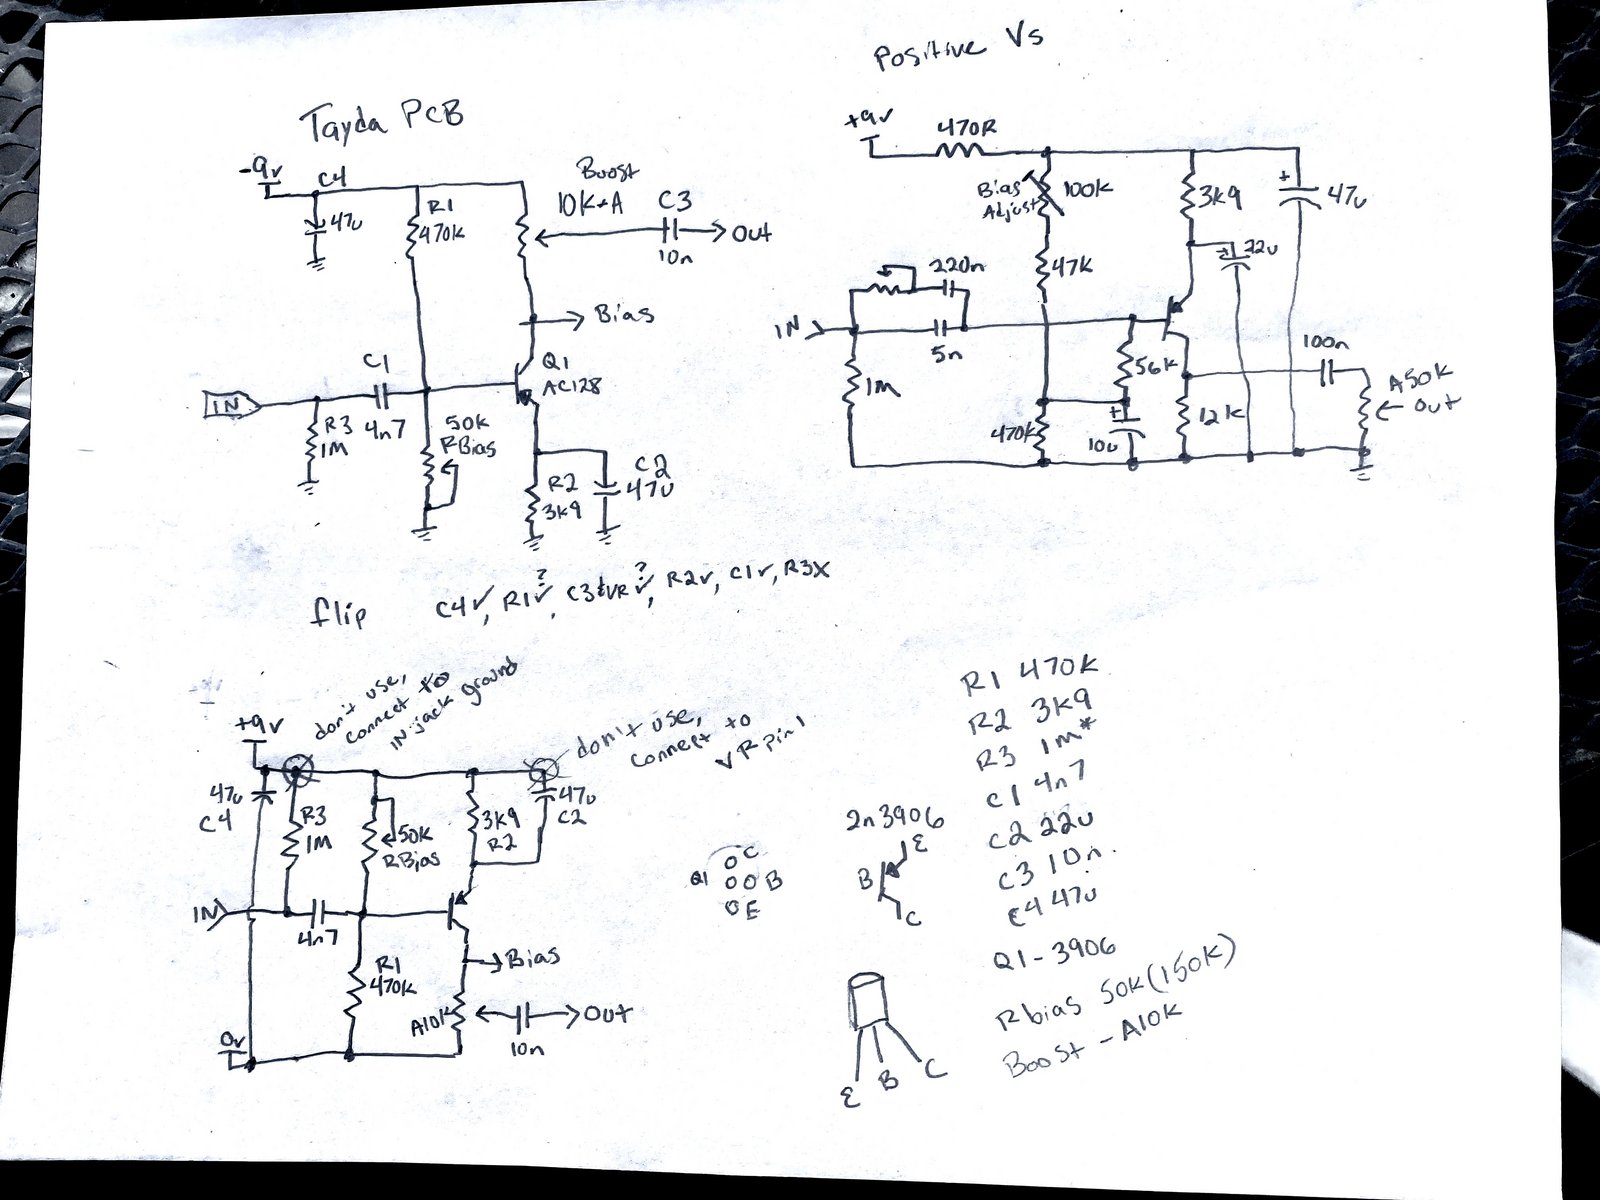 Tayda PCB
-9v
C4
47u
R1
470K
Boost
10K-A
C3
10n
Out
Bias
Q1
AC128
C1
4n7
IN
R3
1M
50K
RBias
R2
3K9
C2
47u
Positive Vs
+9v
470R
Bias
Adjust
100K
3K9
+
47u
220n
47K
22u
IN
5n
1M
56K
100n
A50K
Out
470K
+
10u
12K
flip
C4✓, R1✓?, C3+VR✓?, R2✓, C1✓, R3X
don't use,
connect to
IN jack ground
don't use,
connect to
VR pin 1
+9v
47u
C4
R3
1M
50K
RBias
3K9
R2
47u
C2
IN
4n7
R1
470K
Bias
A10K
10n
Out
0v
Q1
C
B
E
2n3906
E
B
C
E B C
R1 470K
R2 3K9
R3 1M*
C1 4n7
C2 22u
C3 10n
C4 47u
Q1-3906
Rbias 50K(150K)
Boost - A10K